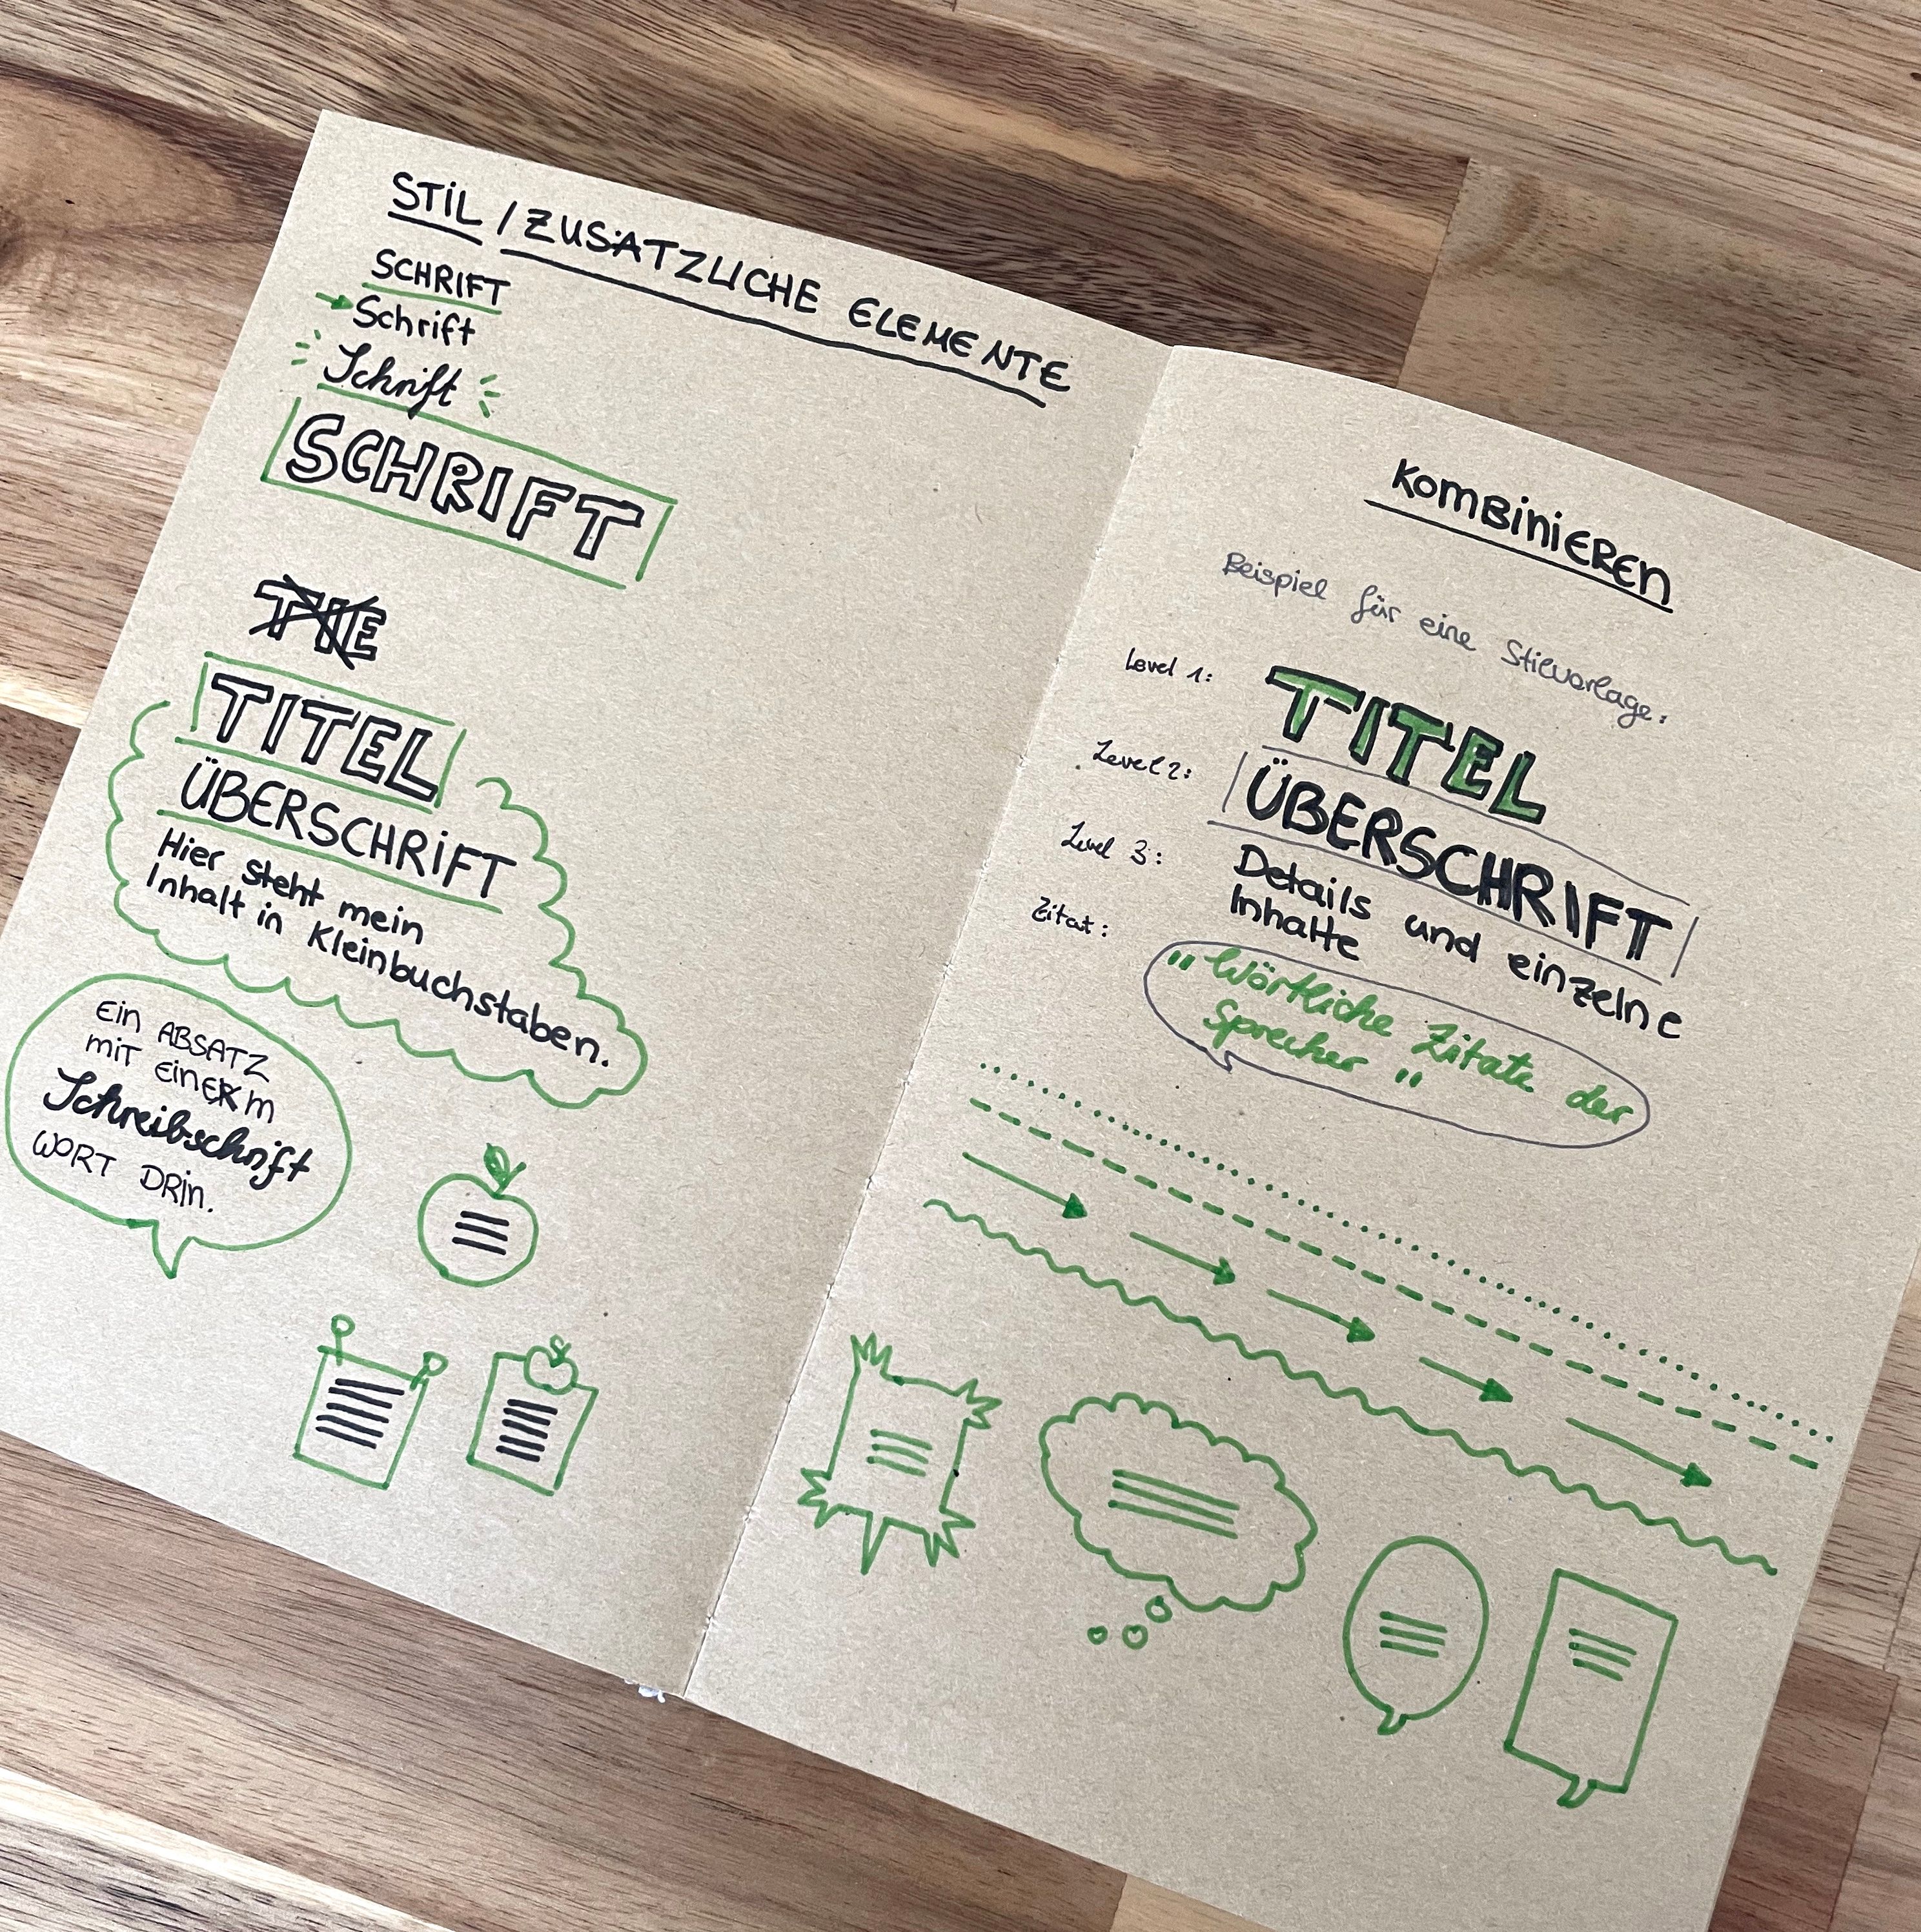 STIL / ZUSÄTZLICHE ELEMENTE
SCHRIFT
Schrift
Schrift
SCHRIFT
TITEL
ÜBERSCHRIFT
Hier steht mein
Inhalt in Kleinbuchstaben.
Ein ABSATZ
mit einem
Schreibschrift
WORT DRin.
KomBiniEREn
Beispiel für eine Stilvorlage:
Level 1: TITEL
Level 2: ÜBERSCHRIFT
Level 3: Details und einzelne
Inhalte
Zitat: "Wörtliche Zitate der
Sprecher"